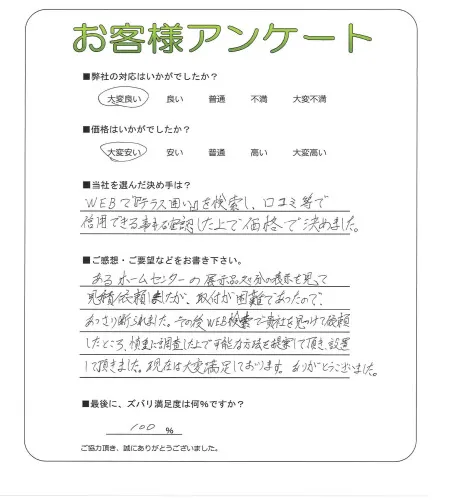 お客様アンケート
■弊社の対応はいかがでしたか？
大変良い 良い 普通 不満 大変不満
■価格はいかがでしたか？
大変安い 安い 普通 高い 大変高い
■当社を選んだ決め手は？
WEBで『テラス囲い』を検索し、口コミ等で
信用できる事を確認した上で価格で決めました。
■ご感想・ご要望などをお書き下さい。
あるホームセンターの展示品処分の表示を見て
見積依頼しましたが、取付が困難であったので、
あっさり断られました。その後WEB検索で貴社を見つけて依頼
したところ、慎重に調査した上で可能な方法を提案して頂き、設置
して頂きました。現在は大変満足しております。ありがとうございました。
■最後に、ズバリ満足度は何％ですか？
100 ％
ご協力頂き、誠にありがとうございました。